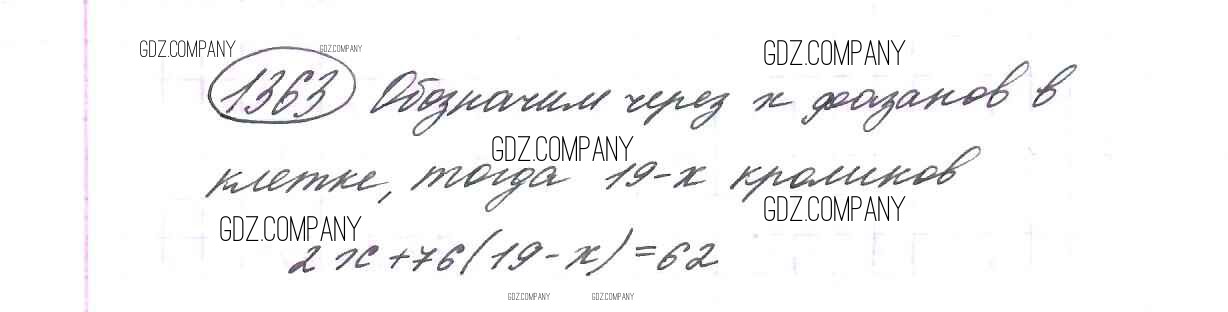 GDZ.COMPANY GDZ.COMPANY GDZ.COMPANY
1363 Обозначим через x фазанов в
GDZ.COMPANY
клетке, тогда 19-x кроликов
GDZ.COMPANY GDZ.COMPANY
2x+76(19-x)=62
GDZ.COMPANY GDZ.COMPANY